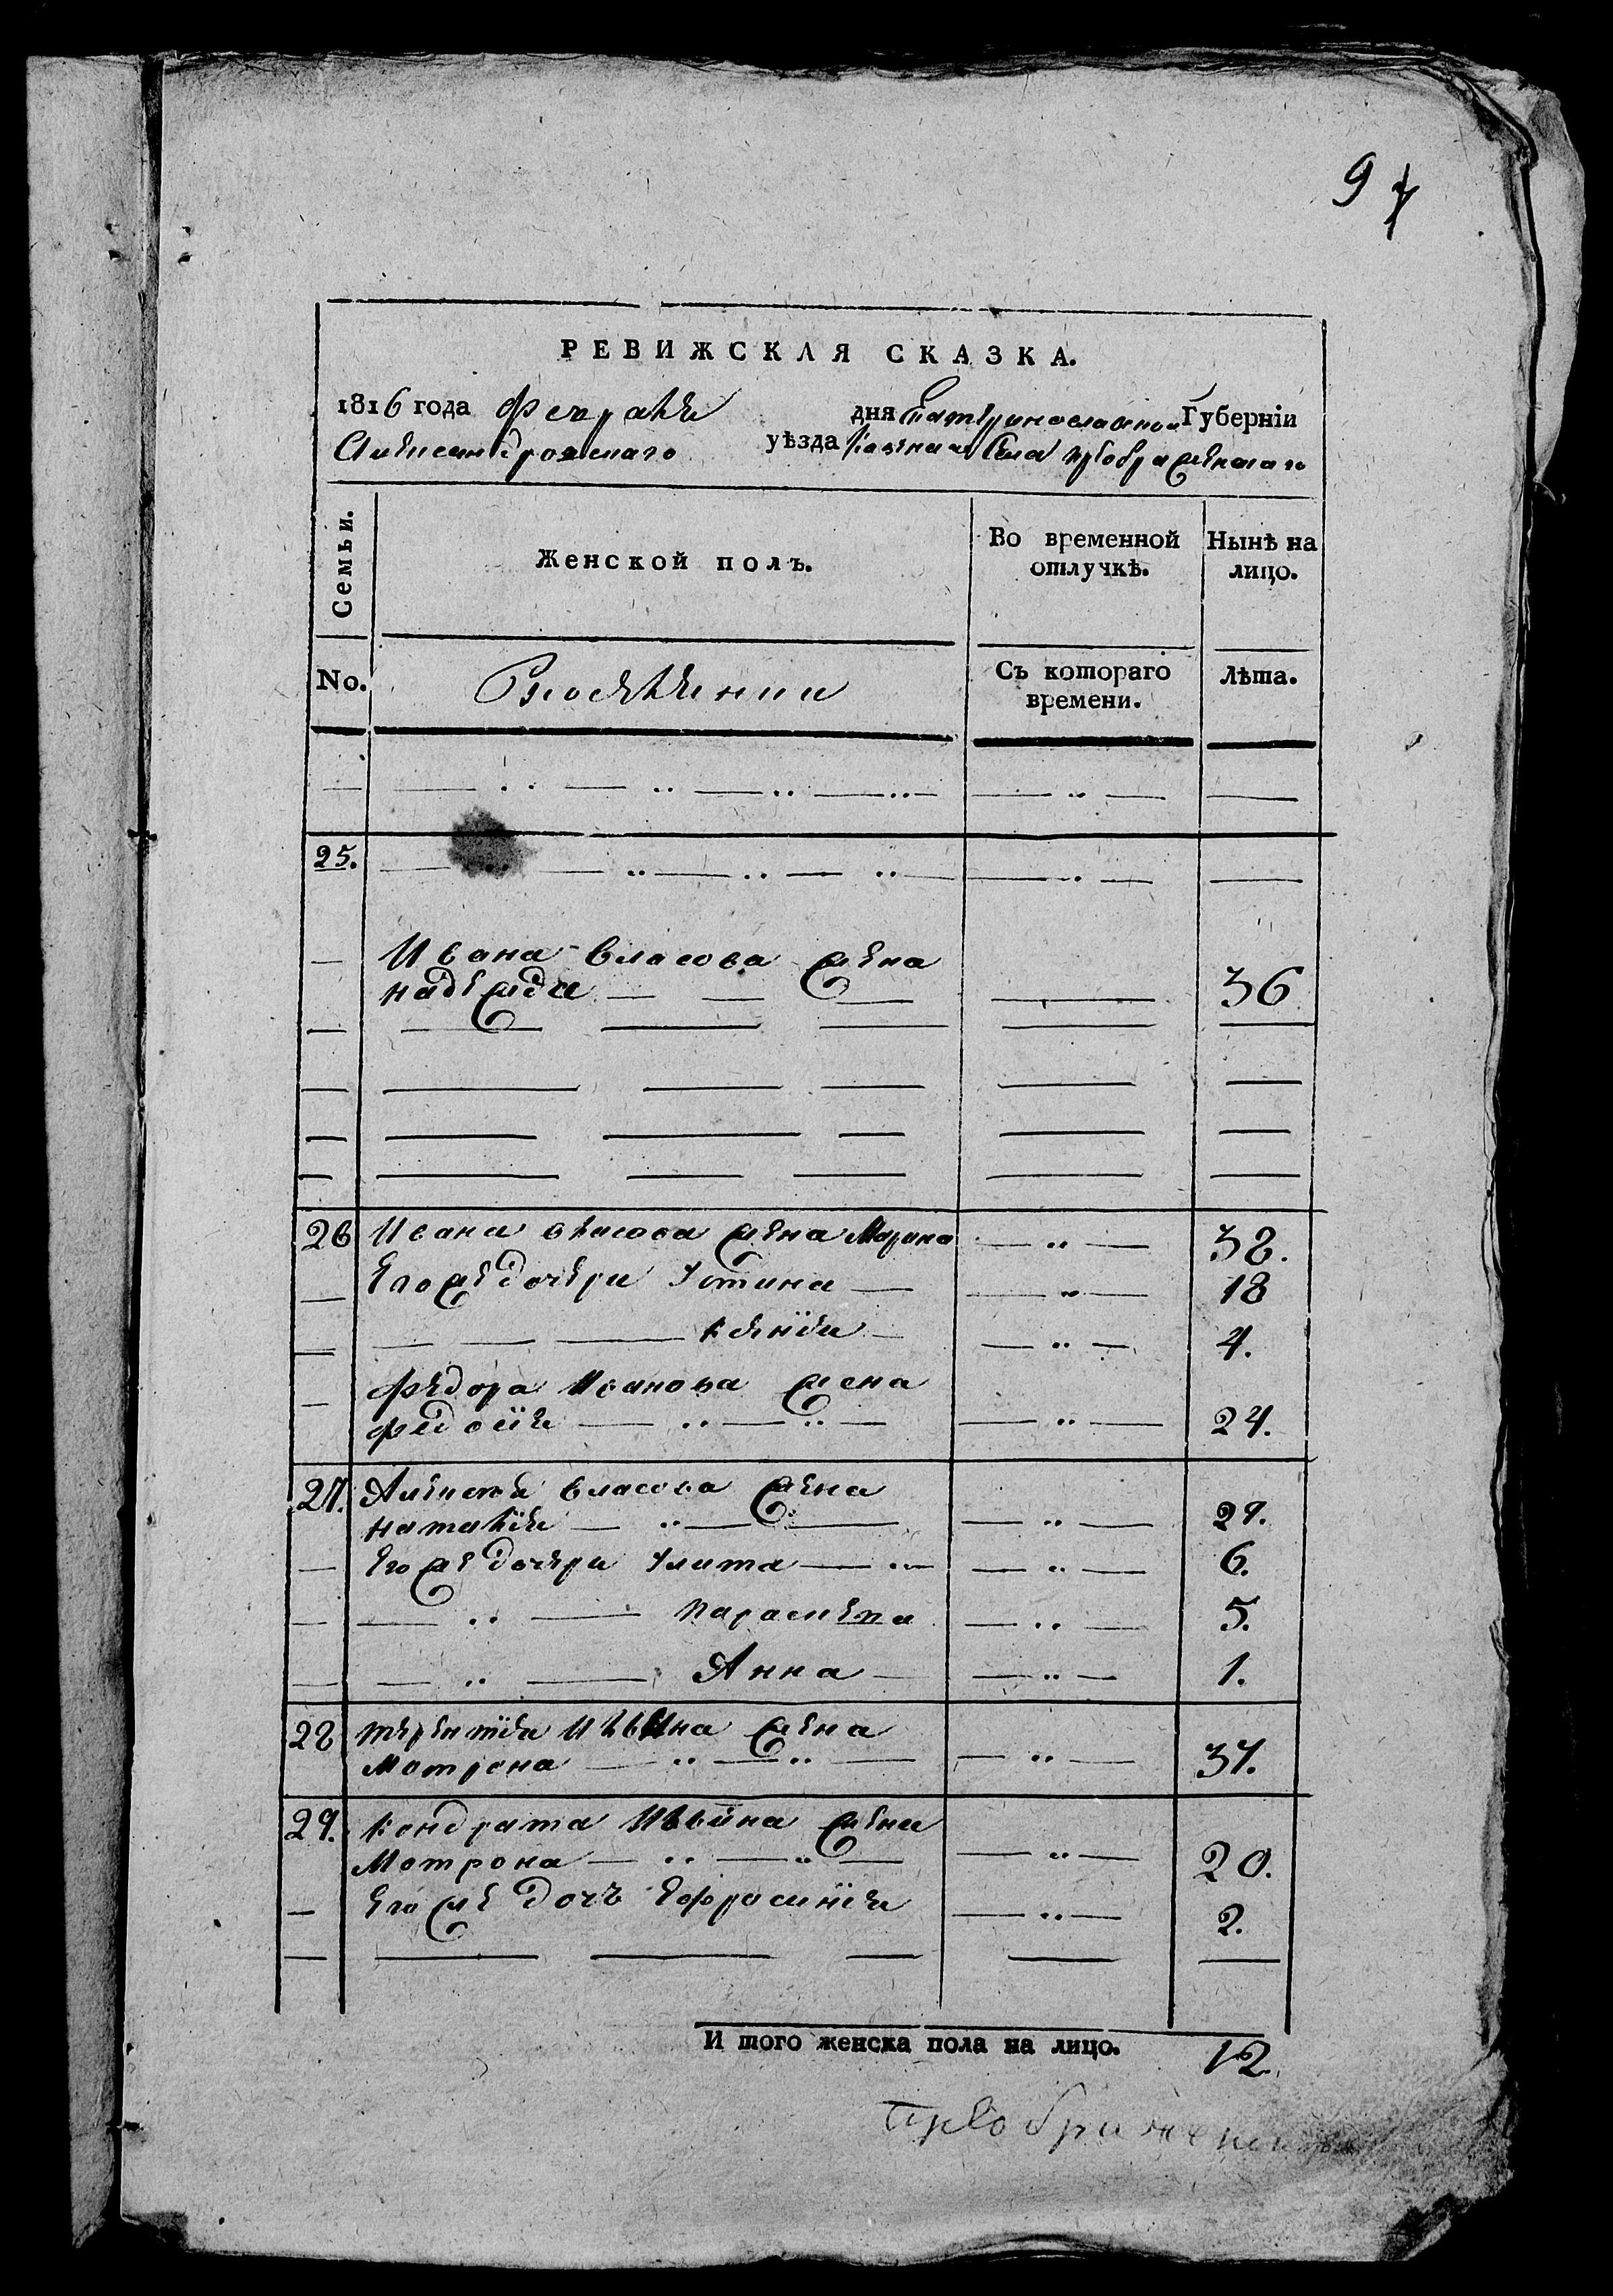 9
РЕВИЖСКАЯ СКАЗКА.
1816 года Февраля дня Екатеринославской Губерніи
Александровскаго уѣзда казеннаго Села Преображенскаго
Семьи. Женской полъ. Во временной Нынѣ на
отлучкѣ. лицо.
No. Съ котораго Лѣта.
времени.
25.
Ивана Власова жена
надежда 36
26 Ивана власова жена Марина 38.
Его же дочери Устина 18
ксенія 4.
Федора Иванова жена
федосія 24.
27. Алексея власова жена
наталія 29.
Его же дочери Улита 6.
Параскева 5.
Анна 1.
28 терентія Ильина жена
Мотрона 37.
29. кондрата Ильина жена
Мотрона 20.
Его же дочь Ефросинія 2.
И того женска пола на лицо. 12.